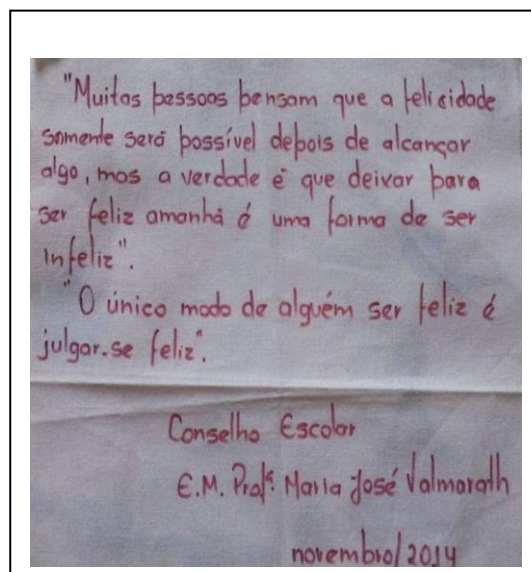 "Muitas pessoas pensam que a felicidade
somente será possível depois de alcançar
algo, mas a verdade é que deixar para
ser feliz amanhã é uma forma de ser
infeliz".
"O único modo de alguém ser feliz é
julgar-se feliz".
Conselho Escolar
E.M. Profª. Maria José Valmorath
novembro/2014